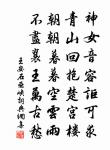 神女音容詎可求
青山回抱楚宮樓
朝朝暮暮空雲雨
不盡襄王萬古愁
王安石巫峽